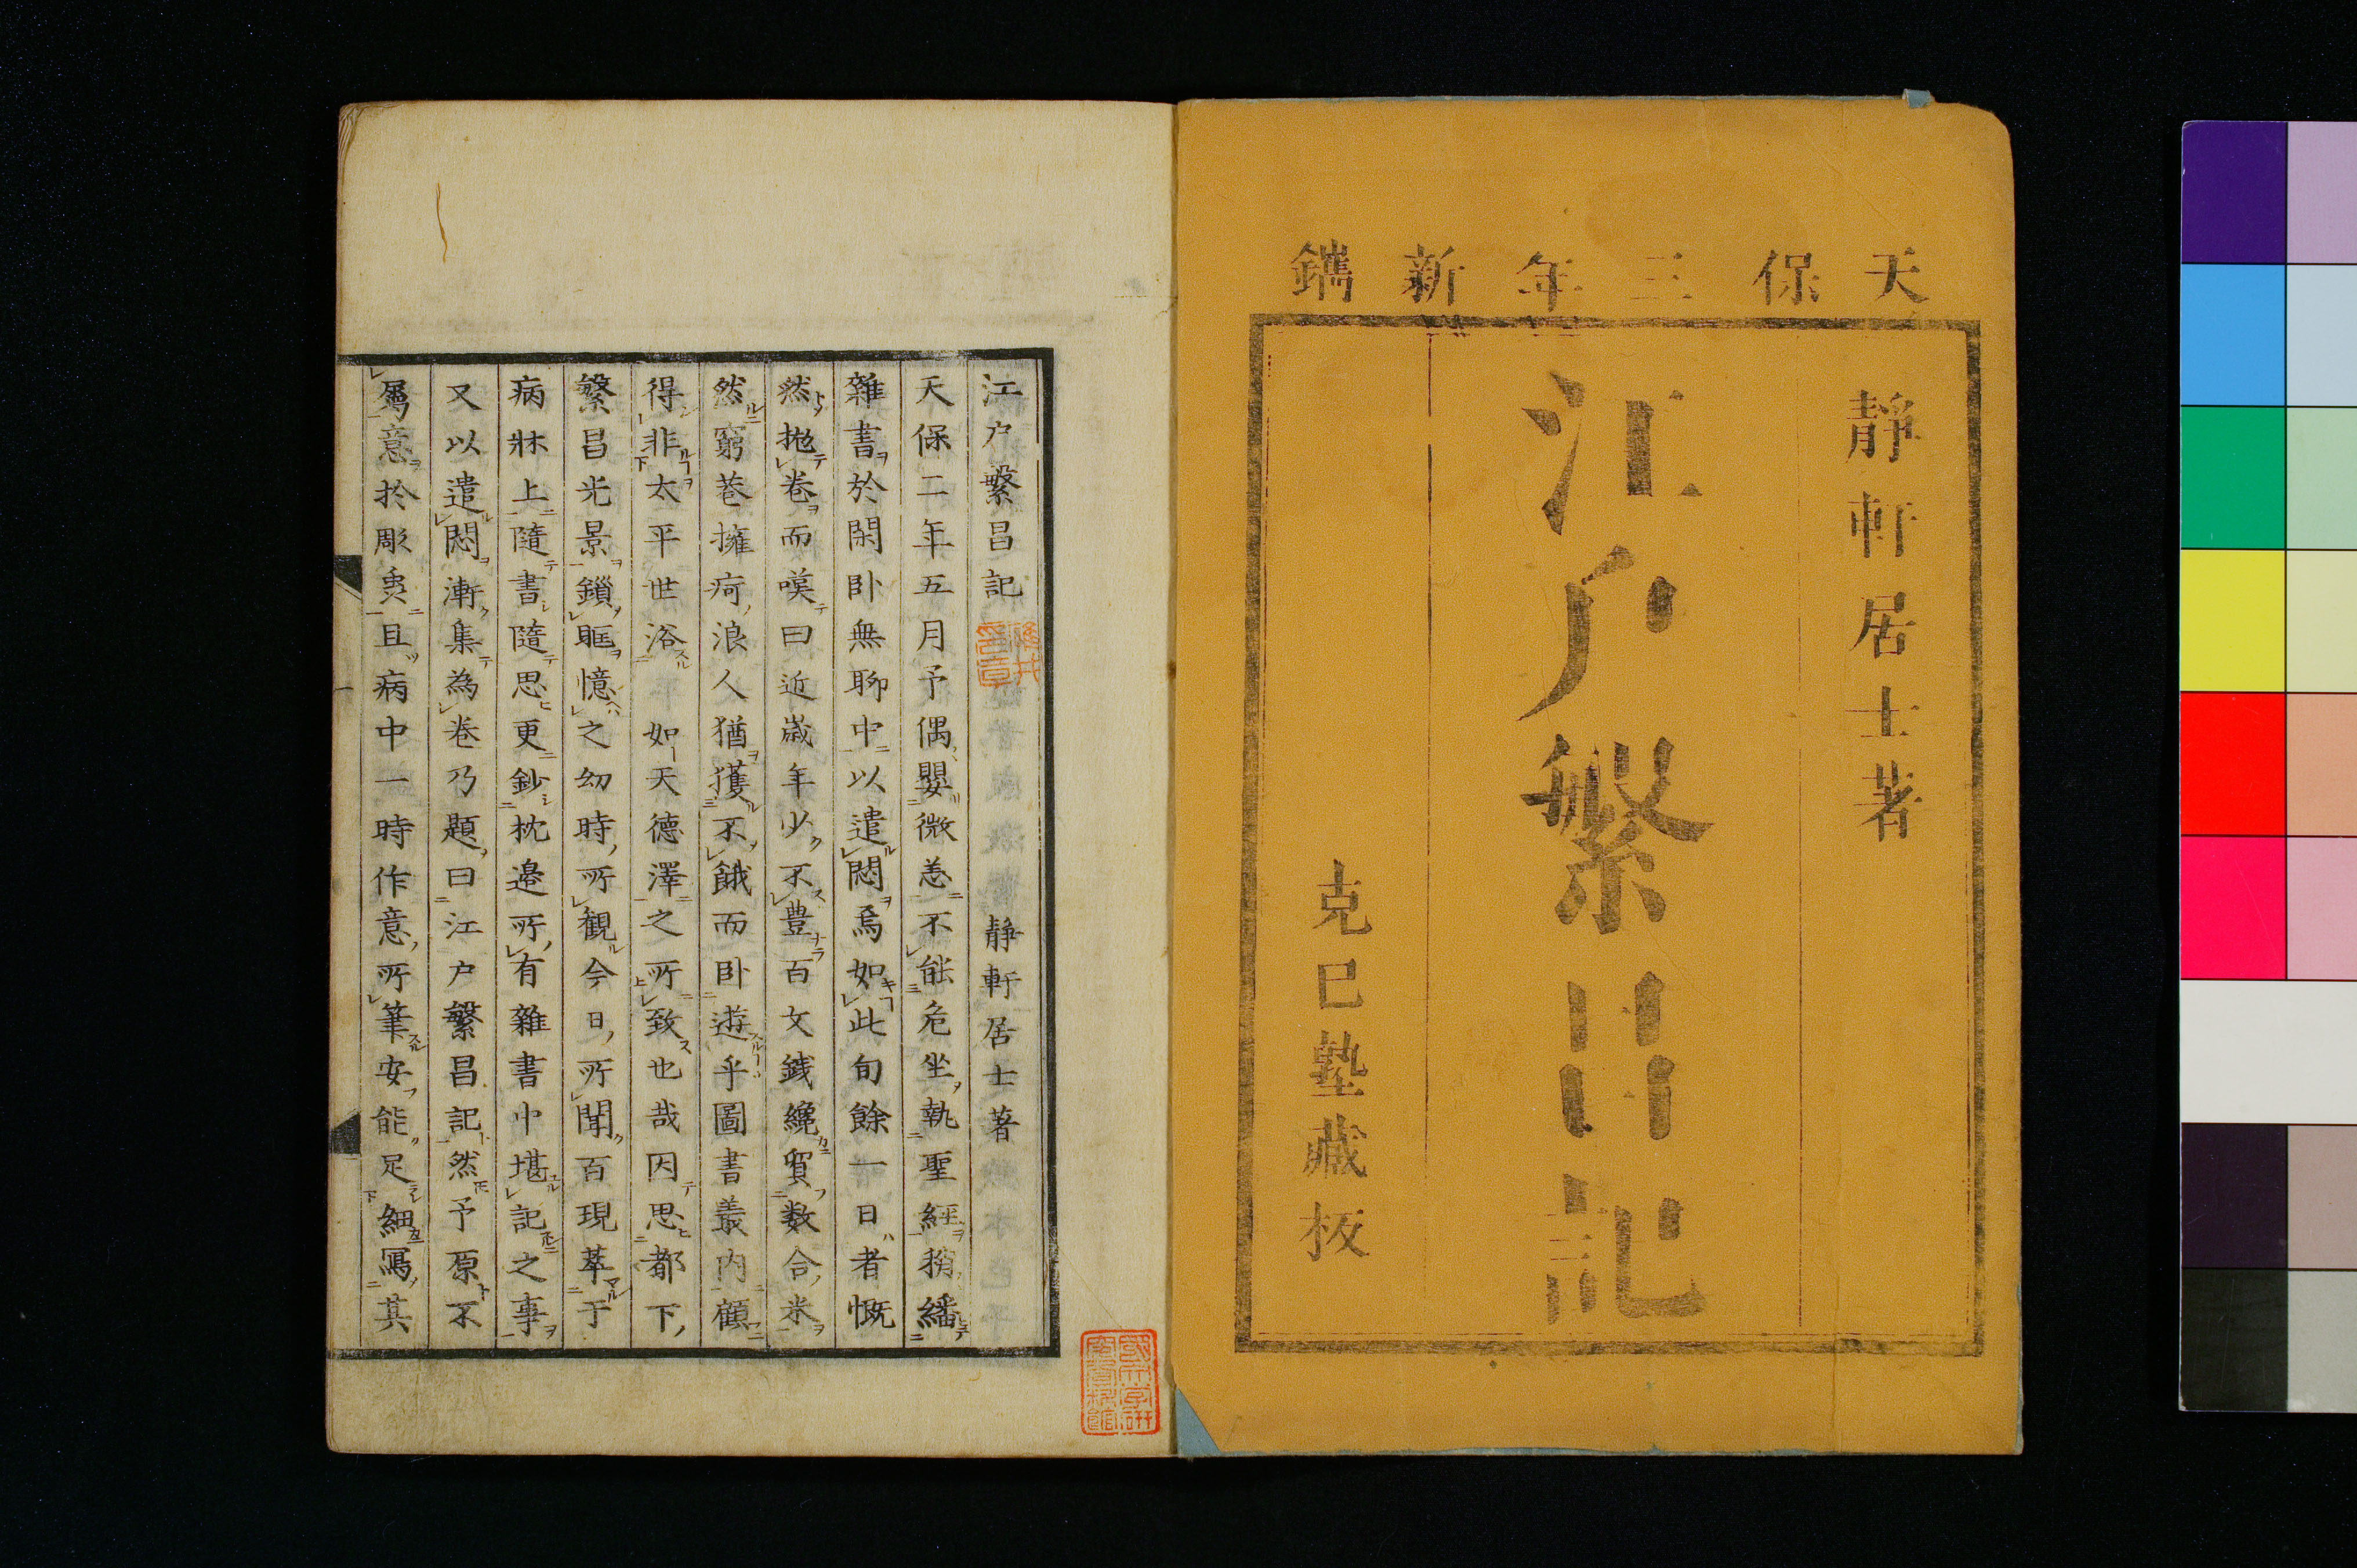 天保三年新鐫
靜軒居士著
江戸繁昌記
克己塾藏板
江戸繁昌記 靜軒居士著
天保二年五月予偶嬰微恙不能危坐執聖經稍繙
雜書於閑臥無聊中以遣悶焉如此旬餘一日者慨
然拋卷而嘆曰近歲年少不豊百文錢纔買数合米
然窮巷擁疴浪人猶獲不餓而臥遊乎圖書叢內顧
得非太平世浴 如天德澤之所致也哉因思都下
繁昌光景鎖眶憶之幼時所觀今日所聞百現萃于
病牀上隨書隨思更鈔枕邊所有雜書中堪記之事
又以遣悶漸集為卷乃題曰江戸繁昌記然予原不
屬意於彫蟲且病中一時作意所筆安能足細寫其